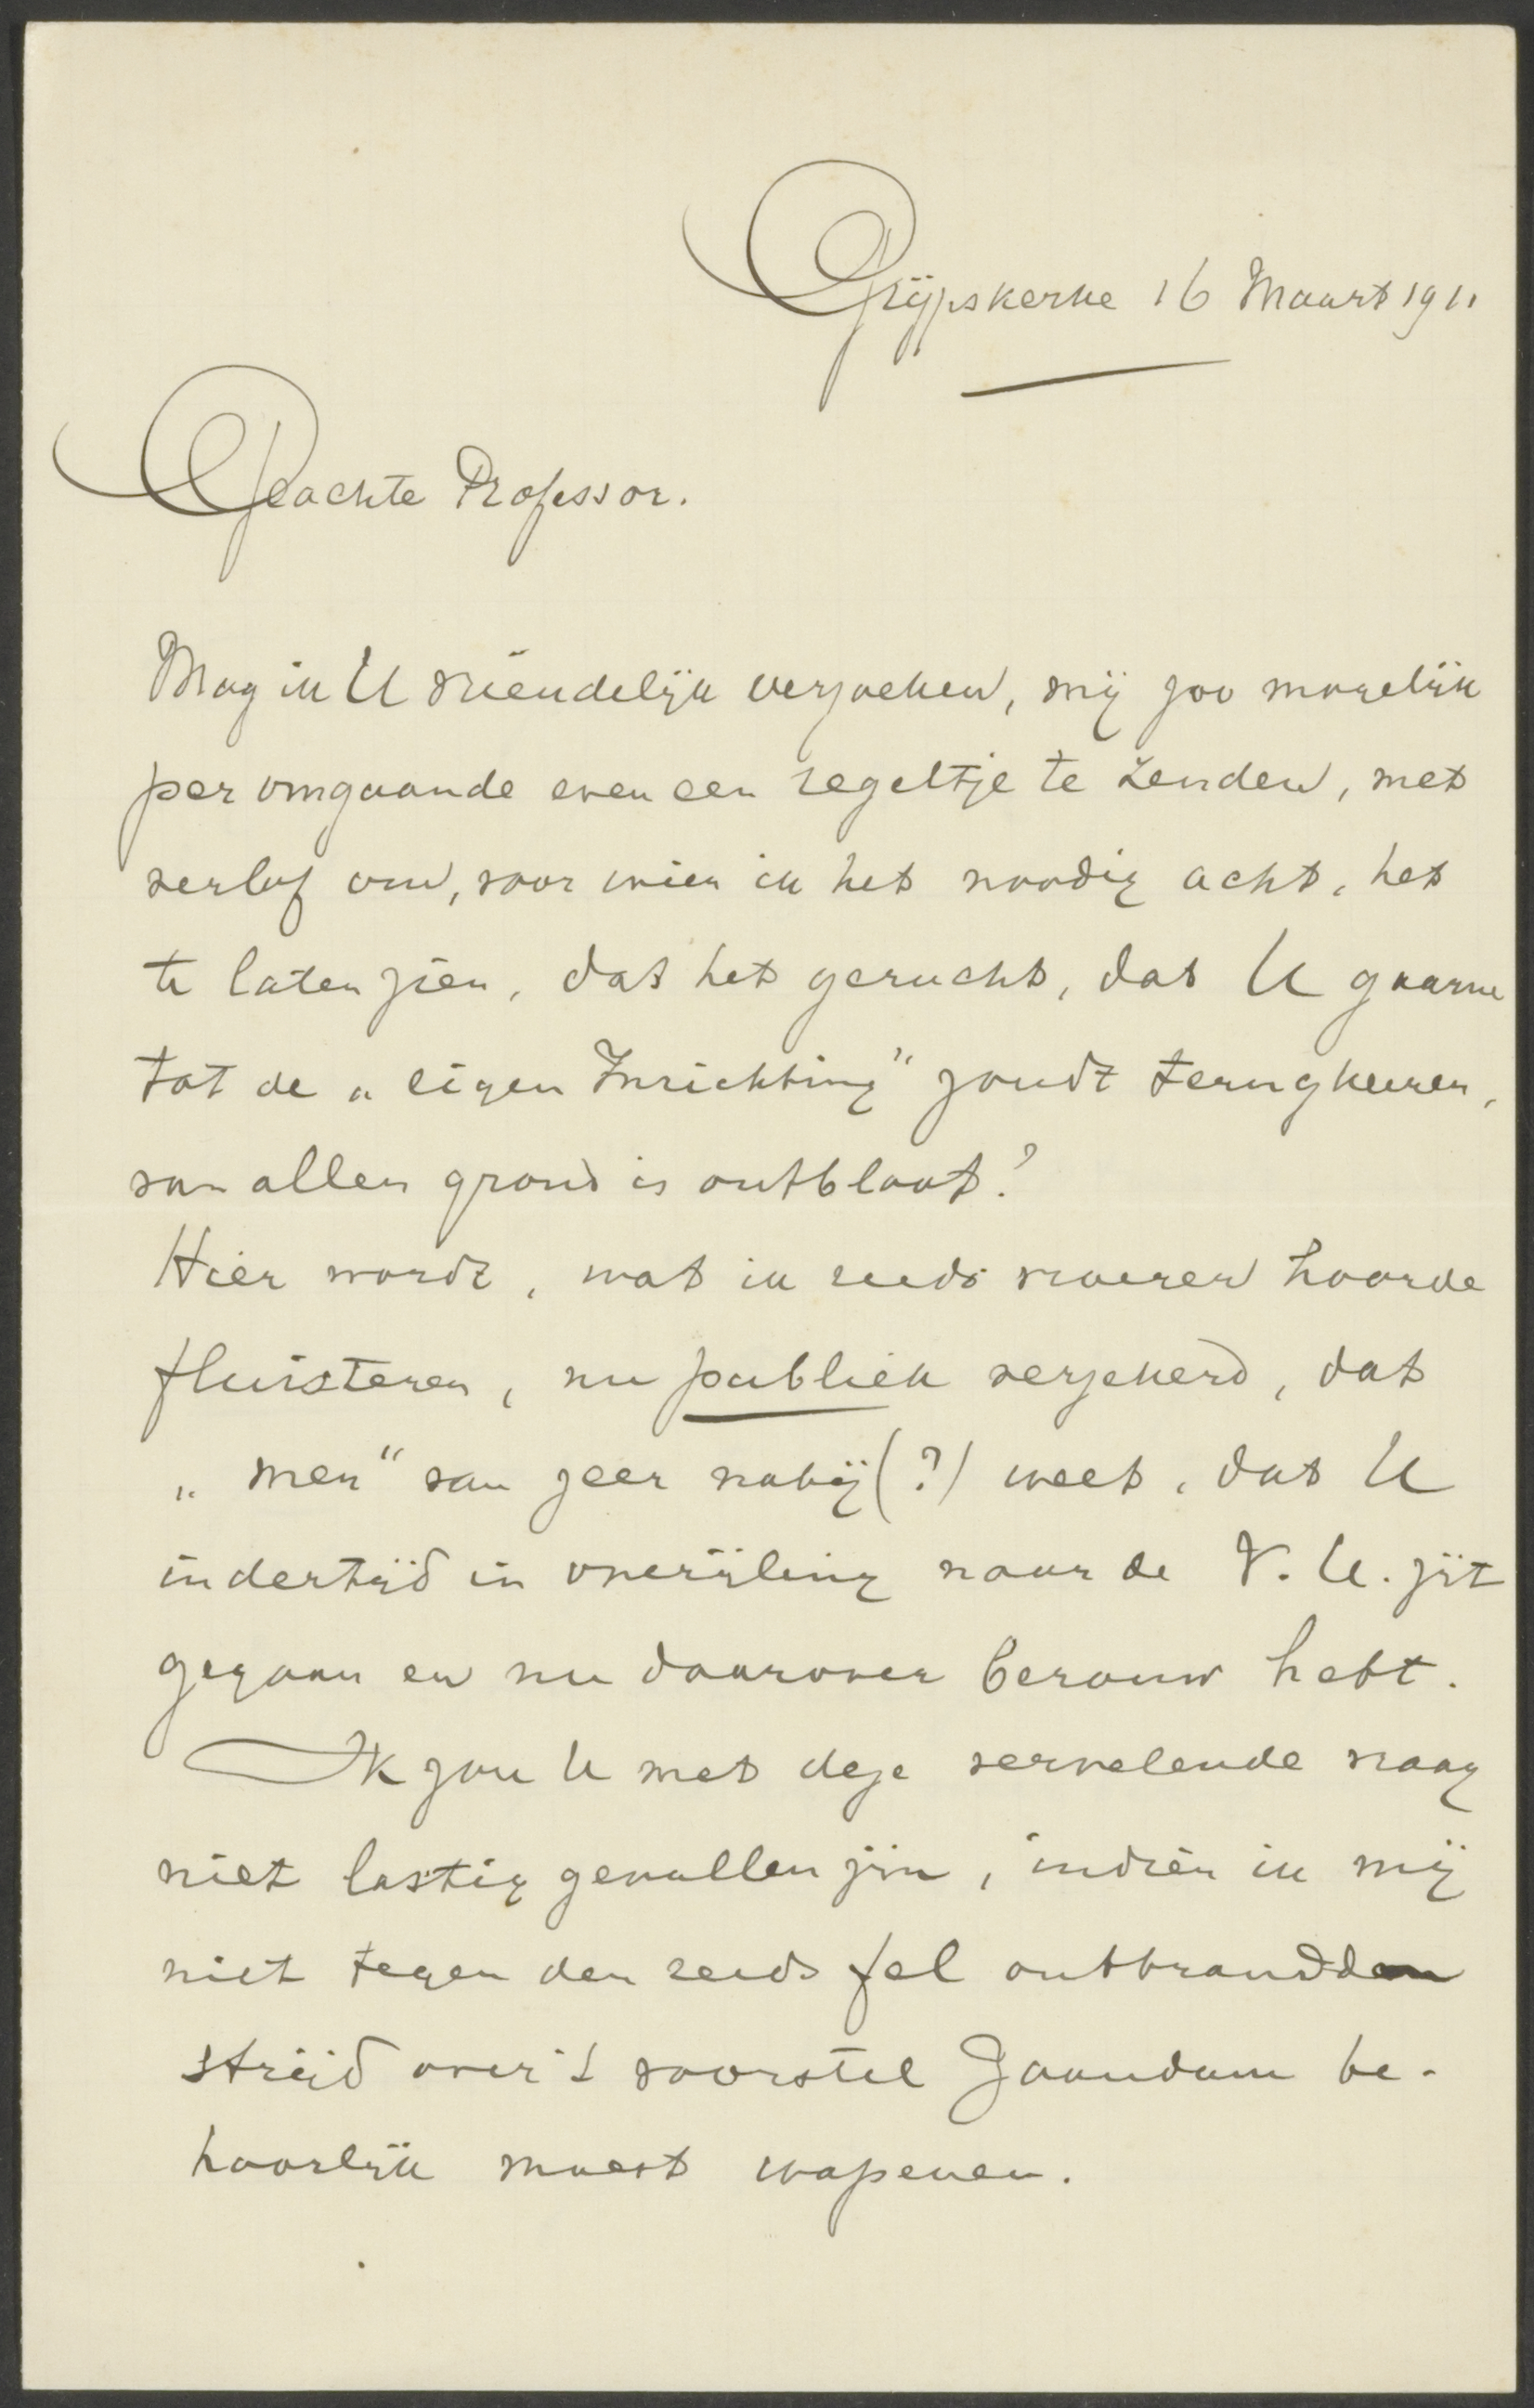 Grijpskerke 16 Maart 1911
Geachte Professor.
Mag ik U vriendelijk verzoeken, mij zoo mogelijk
per omgaande even een regeltje te zenden, met
verlof om, voor wien ik het noodig acht, het
te laten zien, dat het gerucht, dat U gaarne
tot de „eigen Inrichting" zoudt terugkeeren,
van allen grond is ontbloot?
Hier wordt, wat ik reeds vroeger hoorde
fluisteren, nu publiek verzekerd, dat
„men" van zeer nabij (?) weet, dat U
indertijd in overijling naar de V.U. zijt
gegaan en nu daarover berouw hebt.
Ik zou U met deze vervelende vraag
niet lastig gevallen zijn, indien ik mij
niet tegen den reeds fel ontbrandden
strijd over 't voorstel Zaandam be-
hoorlijk moest wapenen.